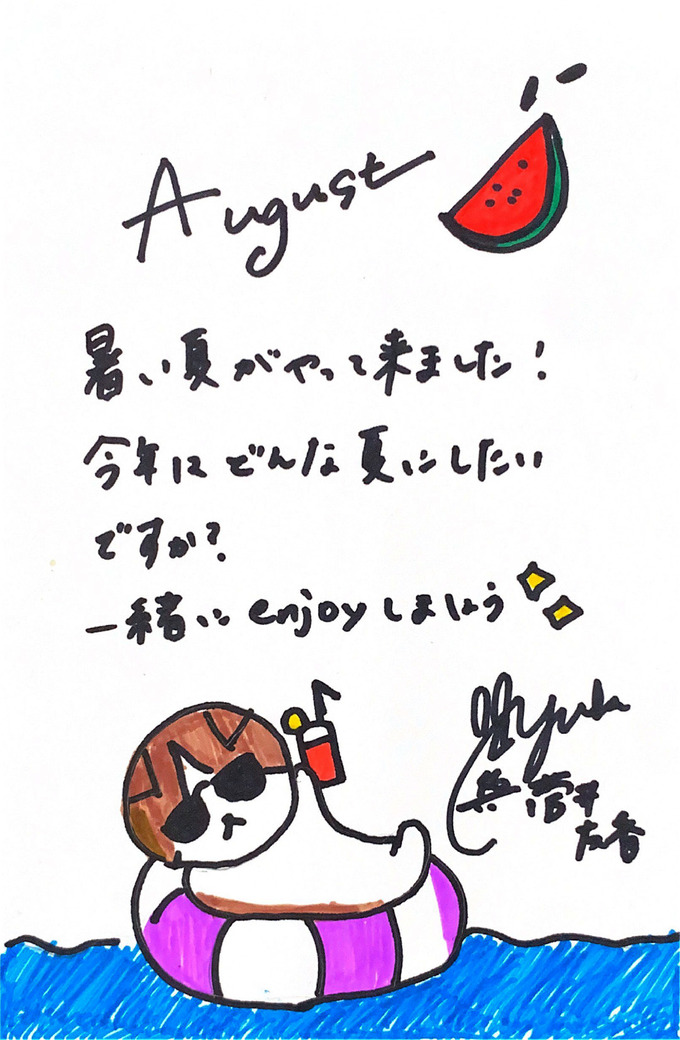 August
暑い夏がやって来ました！
今年はどんな夏にしたい
ですか？
一緒に enjoy しましょう
Yuuka
菅井
友香